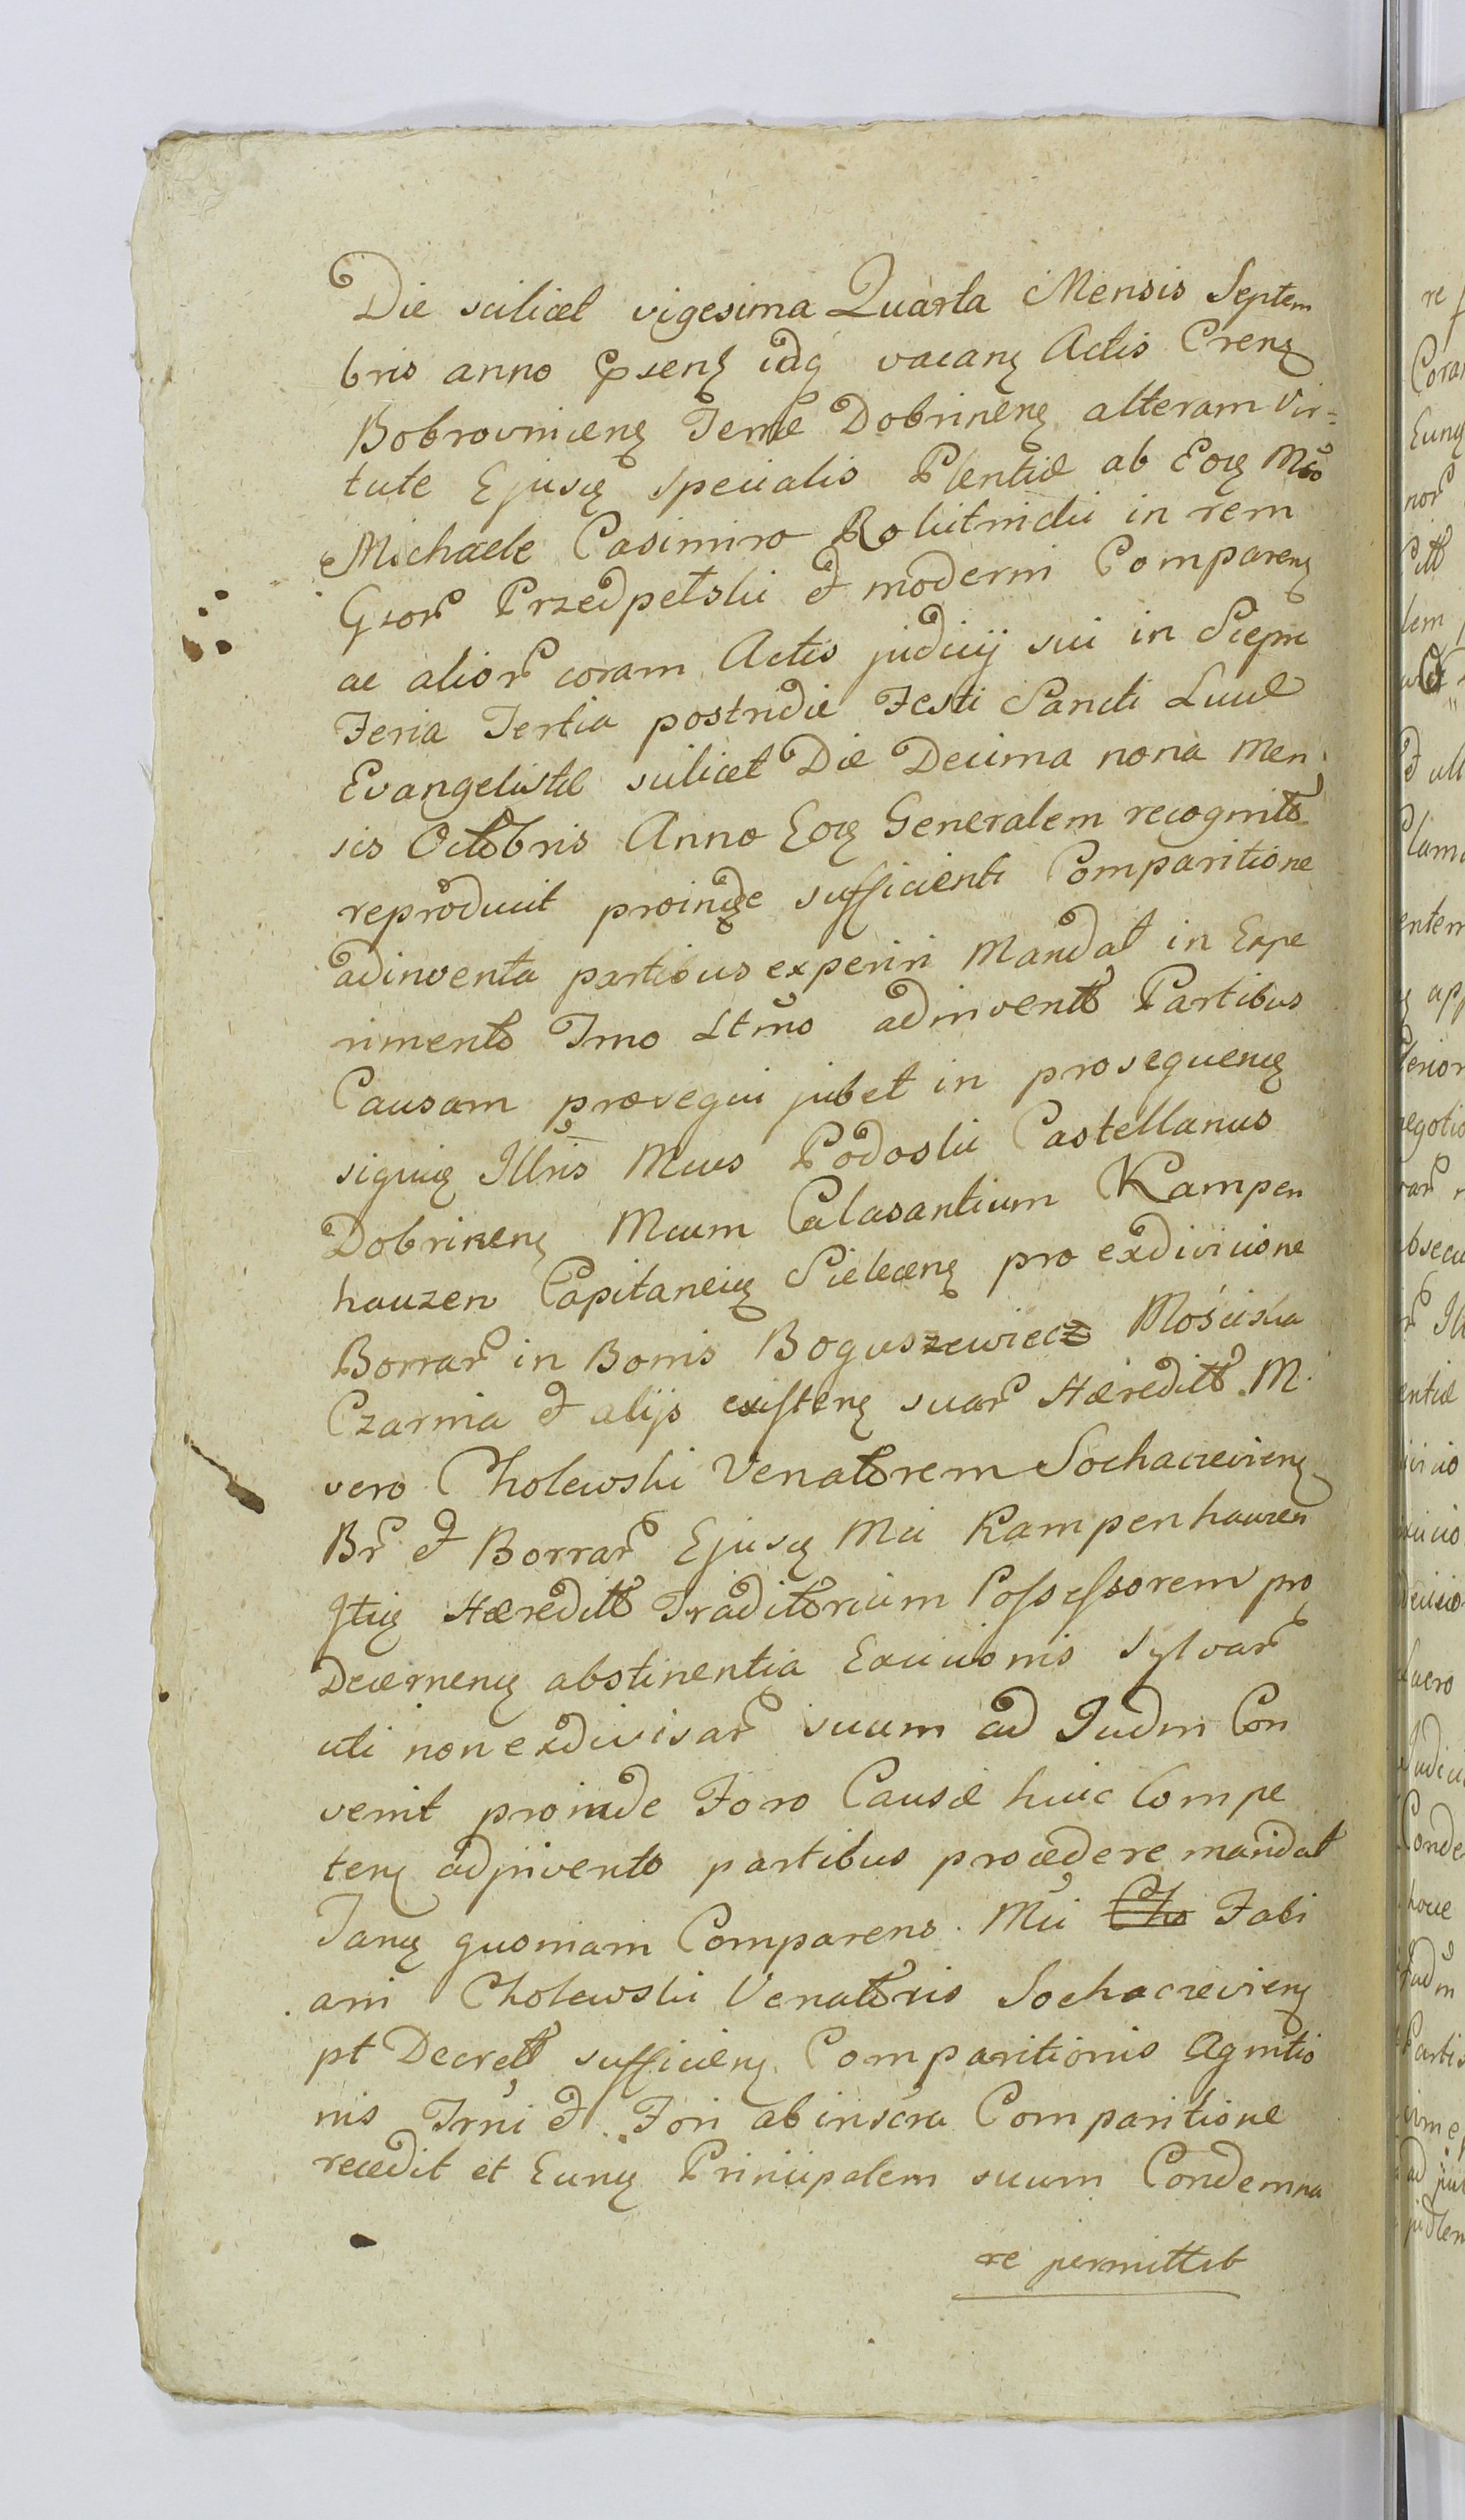 Die scilicet vigesima Quarta Mensis Septem
bris anno Psenȝ idq vacanȝ Actis Crenȝ
Bobrovnicenȝ Terræ Dobrinenȝ alteram Vir=
tute Ejusȩ specialis Plentiæ ab Eoȩ Mco
Michaele Casimiro Rokitnicki in rem
Gsor Przedpełski & moderni Comparenȝ
ac alior coram Actis judicij sui in Siepm
Feria Tertia postridie Festi Sancti Lucæ
Evangelistæ scilicet Die Decima nona Men
sis Octobris Anno Eoȩ Generalem recognito
reproducit proinde sufficienti Comparitione
adinventa partibus experiri Mandat in Expe
rimento Trno Ltmo adinvento Partibus
Causam prosequi jubet in prosequenȩ
siquiȩ Illris Mcus Podoski Castellanus
Dobrinenȝ Mcum Calasantium Kampen
hauzen Capitaneuȩ Sielecenȝ pro exdivicione
Borrar in Bonis Boguszewiecz Mościska
Czarnia & alijs existenȝ suar Hæredito M
vero Cholewski Venatorem Sochaczevienȝ
Br & Borrar Ejusȩ Mci Kampenhauzen
Hæredito Traditorium Possessorem pro
Decernenȩ abstinentia Exicionis Sylvar
uti non exdivisar suum ad Judm Con
venit proinde Foro Causæ huic Compe
tenȝ adjnvento partibus procedere mandat
Tanȩ quoniam Comparens. Mci Cho Fabi
ani Cholewski Venatoris Sochaczevienȝ
pt Decreto sufficienȝ Comparitionis Agnitio
nis Trni & Fori ab inscra Comparitione
recedit et Eunȩ Principalem suum Condemna
re permittit